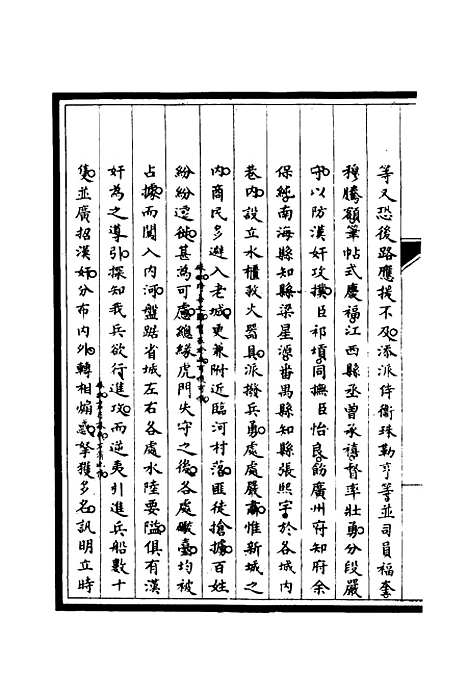 等又恐後路應援不及添派侍衛珠勒亨等並司員福奎
穆騰額筆帖式慶福江西縣丞曹承禧督率壯勇分段嚴
守以防漢奸攻撲臣祁𡎴同撫臣怡良飭廣州府知府余
保純南海縣知縣梁星源番禺縣知縣張熙宇於各城内
巷内設立水櫃救火器具派撥兵勇處處嚴齊惟新城之
内商民多避入老城更兼附近臨河村落匪徒搶擄百姓
紛紛遷徙甚為可慮總緣虎門失守之後各處礮臺均被
占據而闖入内河盤踞省城左右各處水陸要隘俱有漢
奸為之導引探知我兵欲行進攻而逆夷引進兵船數十
隻並廣招漢奸分布内外轉相煽惑拏獲多名訊明立時